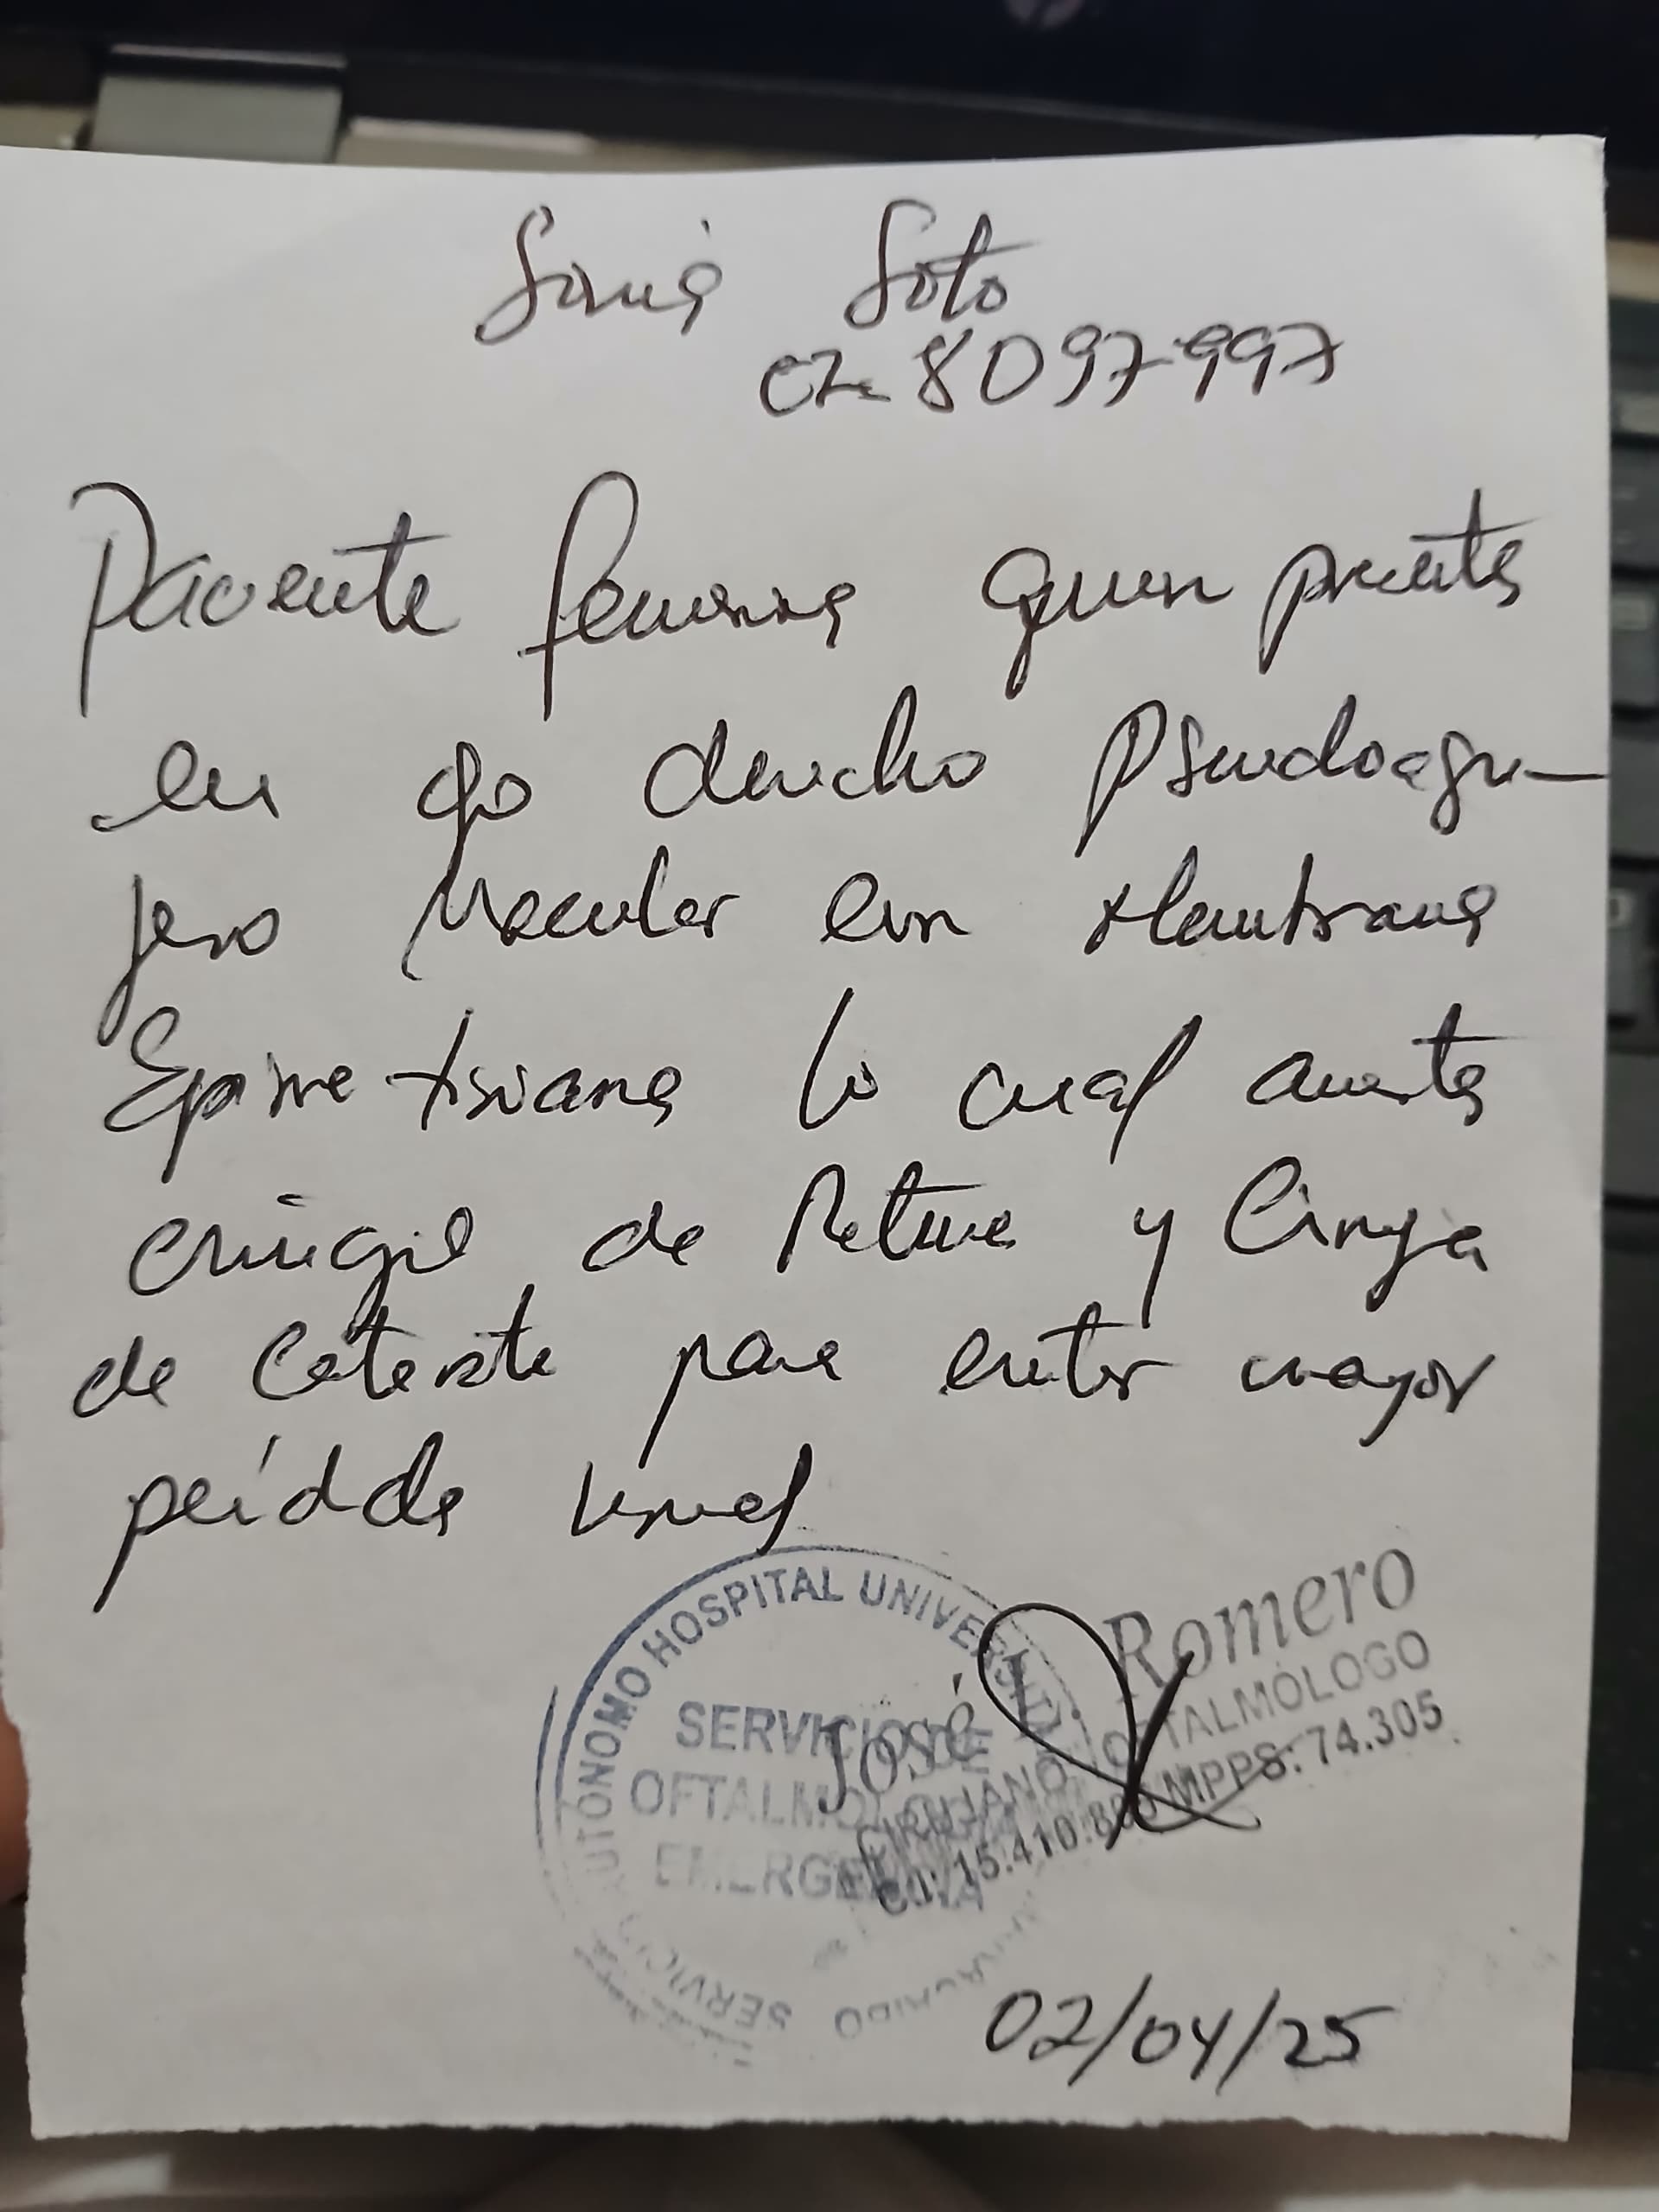 Sonia Soto
CI 8097997
Paciente femenina quien presenta
en ojo derecho Pseudoagu-
jero Macular con Membrana
Epirretiniana lo cual amerita
cirugía de Retina y Cirugía
de Catarata para evitar mayor
pérdida visual
AUTONOMO HOSPITAL UNIVERSIT
SERVICIO DE
OFTALMOLOGIA
EMERGENCIA
SERVICIO
José L. Romero
CIRUJANO OFTALMÓLOGO
MPPS: 74.305
02/04/25